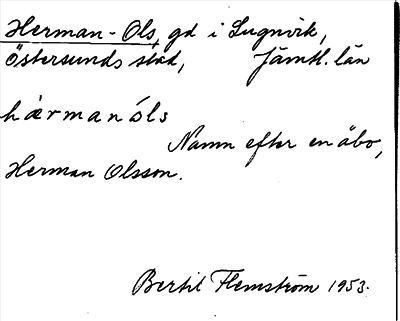 Herman-Ols, gd i Lugnvik,
Östersunds stad, Jämtl. län
hærmanóls
Namn efter en åbo,
Herman Olsson.
Bertil Flemström 1953.